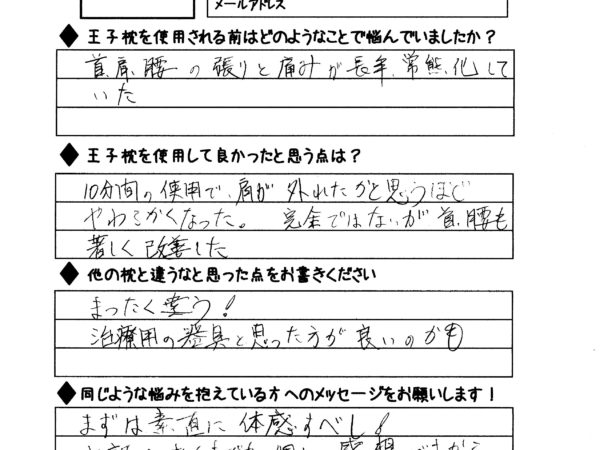 メールアドレス
◆王子枕を使用される前はどのようなことで悩んでいましたか？
首、肩、腰の張りと痛みが長年、常態化して
いた
◆王子枕を使用して良かったと思う点は？
10分間の使用で、肩が外れたかと思うほど
やわらかくなった。 完全ではないが首、腰も
著しく改善した
◆他の枕と違うなと思った点をお書きください
まったく違う！
治療用の器具と思った方が良いのかも
◆同じような悩みを抱えている方へのメッセージをお願いします！
まずは素直に体感すべし！